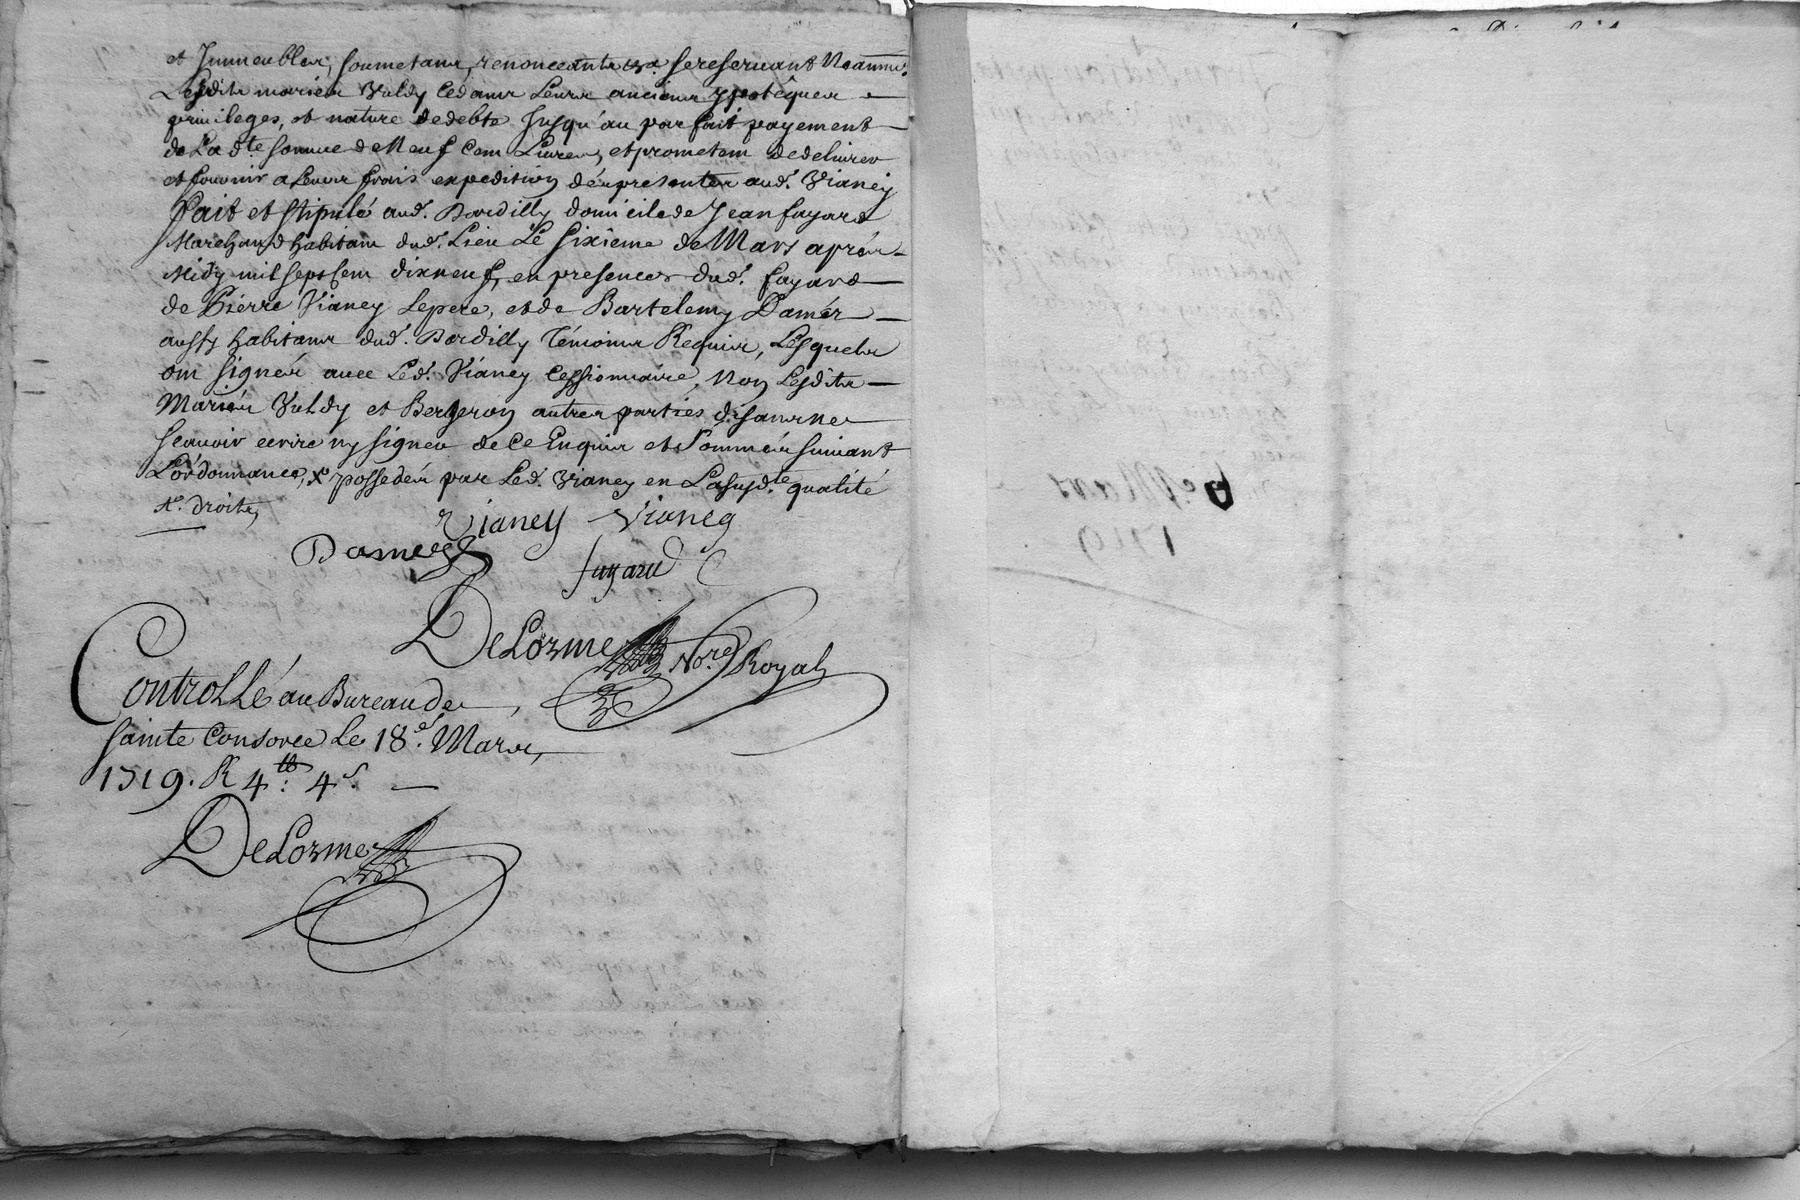 et Jmmeubles, soumetans, renonceants &a. se reservant Neanmt.
Lesdits mariés Vuldy Cedans Leurs anciens ypotêques
privileges, et nature dedebte Jusqu'au parfait payement
de La dte. somme de Neuf Cent Livres, et prometent dedelivrer
et fournir a Leurs frais expedition des presentes aud. Vianey
Fait et stipulé aud. Dardilly domicile de Jean fayard
Marchand habitant dud. Lieu Le sixieme de Mars aprés
Midy mil sept cent dixneuf, en presences dud. fayard
de Pierre Vianey Lepere, et de Bartelemy Damés
aussy habitans dud. Dardilly Témoins Requis, Lesquels
ont signés avec Led. Vianey Cessionnaire, Non Lesdits
Mariés Vuldy et Bergeron autres parties disants ne
scavoir ecrire ny signer de Ce Enquis et Sommés suivant
L'ordonnance, x possedés par Led. Vianey en Lasusdte. qualité
te. droits,
Vianey Vianey
Damés
fayard
DeLorme Nore. Royal
Controllé au Bureau de
Sainte Consorce Le 18e. Mars,
1719. R 4lt: 4s.
DeLorme
6e Mars
1719